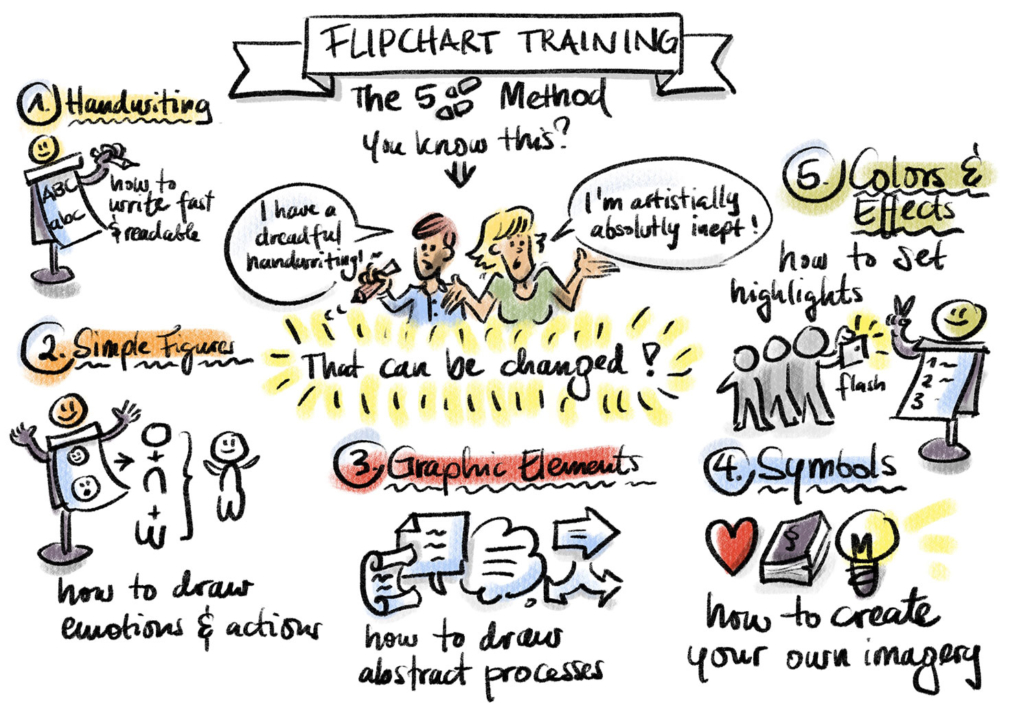 FLIPCHART TRAINING
The 5 Method
You know this?
1. Handwriting
ABC
abc
how to
write fast
& readable
I have a
dreadful
handwriting!
I'm artistially
absolutly inept!
That can be changed!
2. Simple Figures
O
+
+
how to draw
emotions & actions
3. Graphic Elements
how to draw
abstract processes
4. Symbols
§
M
how to create
your own imagery
5. Colors &
Effects
how to set
highlights
flash
1
2
3